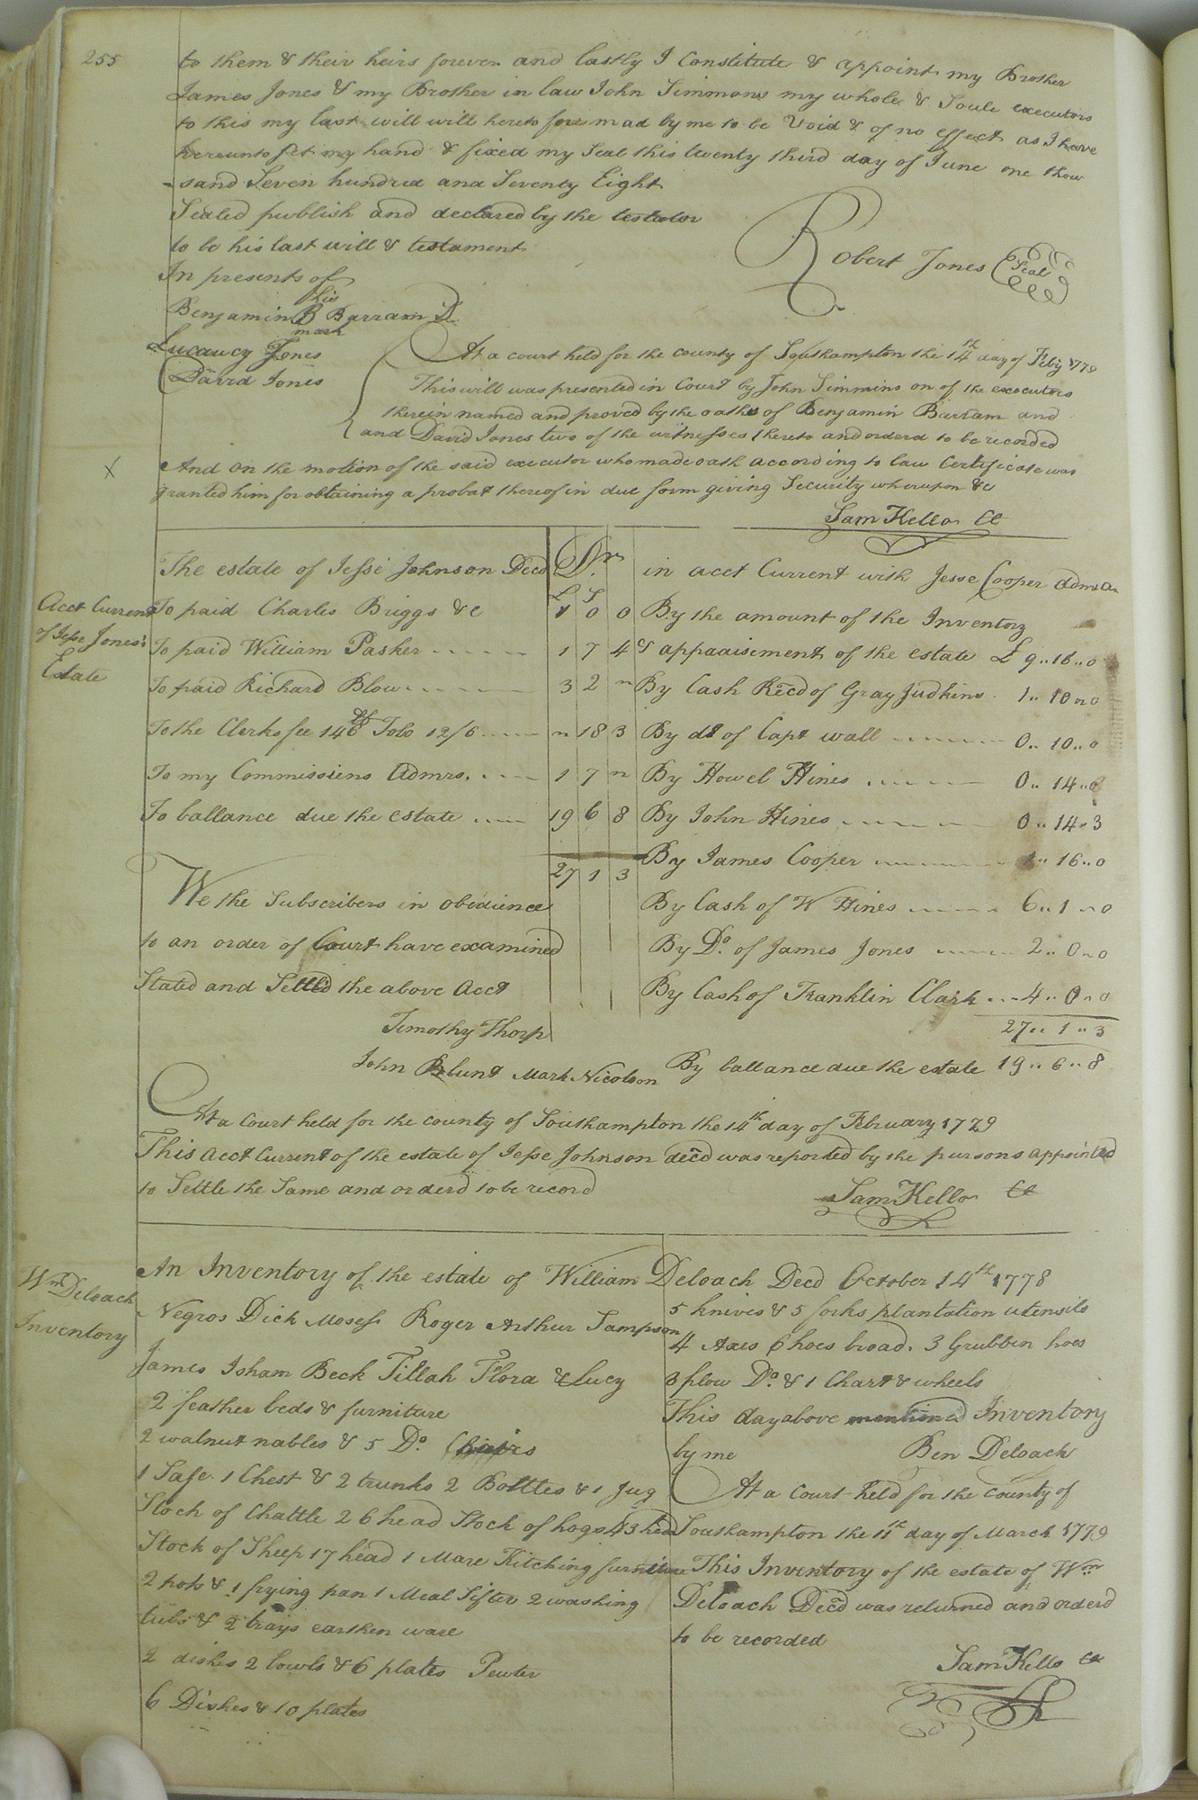 255
to them & their heirs forever and lastly I Constitute & appoint my Brother
James Jones & my Brother in law John Simmons my whole & Soule executors
to this my last will will hereto fore mad by me to be Void & of no effect as I have
hereunto Set my hand & fixed my Seal this twenty third day of June one thou
-sand Seven hundred and Seventy Eight
Sealed publish and declared by the testator
to be his last will & testament
Robert Jones (Seal)
In presents of
his
Benjamin B Barram
mark
Jones
David Jones
At a court held for the county of Southampton the 14th day of Feby 1779
This will was presented in Court by John Simmins on of the executors
therein named and proved by the oaths of Benjamin Barram and
and David Jones two of the witnesses thereto and orderd to be recorded
X
And on the motion of the said executor who made oath according to law Certificate was
granted him for obtaining a probat thereof in due form giving Security whereupon &c
Sam Kello Cl
The estate of Jesse Johnson Decd Dr. in acct Current with Jesse Cooper
£ S
Acct Current
of Jesse Jones's
Estate
To paid Charles Briggs &c 1 0 0 By the amount of the Inventory
To paid William Pasker ...... 1 7 4 & appaaisement of the estate £ 9..16..0
To paid Richard Blow ...... 3 2 " By Cash Recd of Gray Judkins 1..10..0
To the Clerks fee 146 Tobo 12/6 ..... " 18 3 By do of Capt wall ........ 0..10..0
To my Commissions Admrs. .... 1 7 " By Howel Hines ........ 0..14..0
To ballance due the estate ..... 19 6 8 By John Hines ........ 0..14..3
27 1 3 By James Cooper ........ 1..16..0
We the Subscribers in obedience By Cash of W Hines ...... 6..1..0
to an order of Court have examined By Do. of James Jones ..... 2..0..0
Stated and Settled the above Acct By Cash of Franklin Clark ... 4..0..0
Timothy Thorp 27..1..3
John Blunt Mark Nicolson By ballance due the estate 19..6..8
At a Court held for the county of Southampton the 14th day of February 1779
This Acct Current of the estate of Jesse Johnson decd was reported by the pursons appointed
to Settle the Same and orderd to be record
Sam Kello Cl
Wm Deloach
Inventory
An Inventory of the estate of William Deloach Decd October 14th 1778
Negros Dick Moses Roger Arthur Sampson
James Isham Beck Tillah Flora & Lucy
2 feather beds & furniture
2 walnut nables & 5 Do. Chairs
1 Safe 1 Chest & 2 trunks 2 Bottles & 1 Jug
Stock of Chattle 26 head Stock of hogs 43 head
Stock of Sheep 17 head 1 Mare Kitching furniture
2 pots & 1 frying pan 1 Meal Sifter 2 washing
tubs & 2 trays earthen ware
2 dishes 2 bowls & 6 plates Pewter
6 Dishes & 10 plates
5 knives & 5 forks plantation utensils
4 Axes 6 hoes broad. 3 Grubben hoes
3 plow Do. & 1 Chart & wheels
This day above mentioned Inventory
by me Ben Deloach
At a Court held for the County of
Southampton the 11th day of March 1779
This Inventory of the estate of Wm
Deloach Decd was returned and orderd
to be recorded
Sam Kello Cl